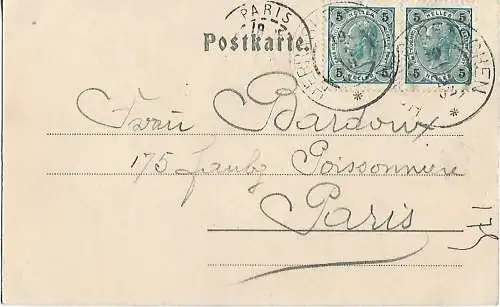 PARIS
5 HELLER 5
5 HELLER 5
Postkarte.
Frau Bardoux
175 faubg Poissonnière
Paris
175